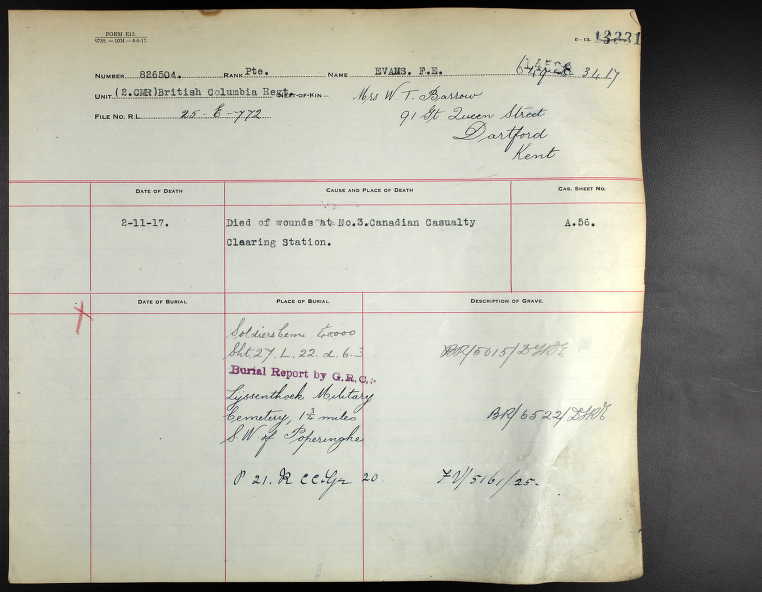 FORM E13.
D-13. 13231
NUMBER 826504. RANK Pte. NAME EVANS. F.E. 649 3417
UNIT (2.CMR)British Columbia Regt. NEXT-OF-KIN Mrs W. T. Barrow
FILE NO. R.L. 25-E-772 91 Gt Queen Street
Dartford
Kent
DATE OF DEATH CAUSE AND PLACE OF DEATH CAS. SHEET NO.
2-11-17. Died of wounds at No.3.Canadian Casualty A.56.
Clearing Station.
DATE OF BURIAL PLACE OF BURIAL DESCRIPTION OF GRAVE.
Soldiers Cem
Sht 27. L. 22. d. 6.3 BR/5015/
Burial Report by G.R.C.:-
Lyssenthoek Military
Cemetery, 1¾ miles BR/6522/
S W of Poperinghe
P 21. R CC. Gr 20 FV/5161/25-